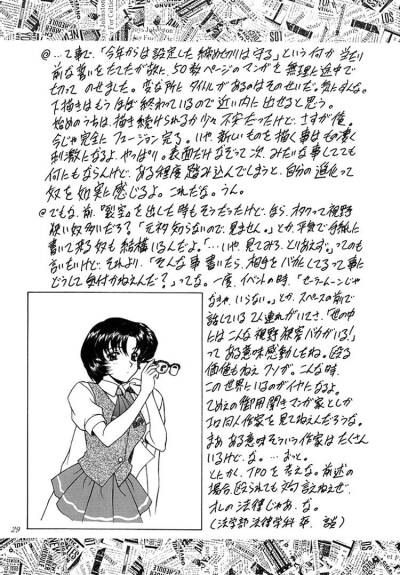 @…って事で、「今年からは設定した締め切りは守る」という何か当たり
前な誓いをたてたが故に、50数ページのマンガを無理に途中で
切ってのせました。変な所にタイトルがあるのはそのせいだ。気にすんな。
下描きはもうほぼ終わっているので近い内に出せると思う。
始めのうちは、描き続けられるか少々不安だったけど、さすが俺。
今じゃ完全にフュージョン完了。いや新しいものを描く事はもの凄く
刺激になるよ、やっぱり。表面だけなぞって次、みたいな事してても
何にもならんけど、ある程度踏み込んでしまうと、自分の進化って
奴を如実に感じるよ。これだな。うん。
@でもな、前、"裂空"を出した時もそうだったけど、なら、オタクって視野
狭い奴多いだろ?「元ネタ知らないので、見ません。」とか、平気で手紙に
書いて来る奴も結構いるんだよ。「…いや、見てみろ、とりあえず。」っても
言いたいけど、それより、「そんな事書いたら、相手をバカにしてるって事に
どうして気付かねえんだ?」ってな。一度、イベントの時、「セーラームーンじゃ
なきゃ、いらない。」とか、スペースの前で
話している2人連れがいてさ、「世の中
にはこんな視野狭窄バカがいる!」
って ある意味感動したね。殴る
価値もねえクソが。こんな時、
この世界にいるのがイヤになるよ。
てめえの御用聞きマンガ家としか
エロ同人作家を見てねえんだろうな。
まあ ある意味そういう作家はたくさん
いるけど、な。…おっと。
とにかく、TPOを考えな。前述の
場合、殴られても文句言えねえぜ、
オレの法律じゃあ、な。
(法学部法律学科卒、談)
29